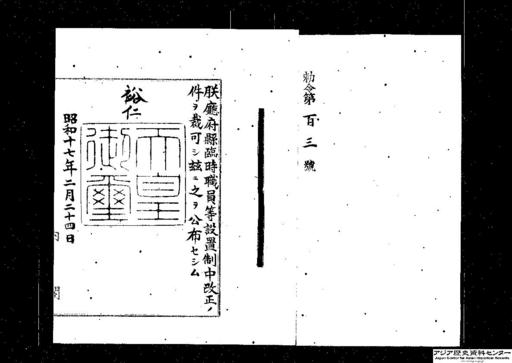 勅令第百三號
朕廳府縣臨時職員等設置制中改正ノ
件ヲ裁可シ玆ニ之ヲ公布セシム
裕仁
天皇
御璽
昭和十七年二月二十四日
内閣
アジア歴史資料センター
Japan Center for Asian Historical Records